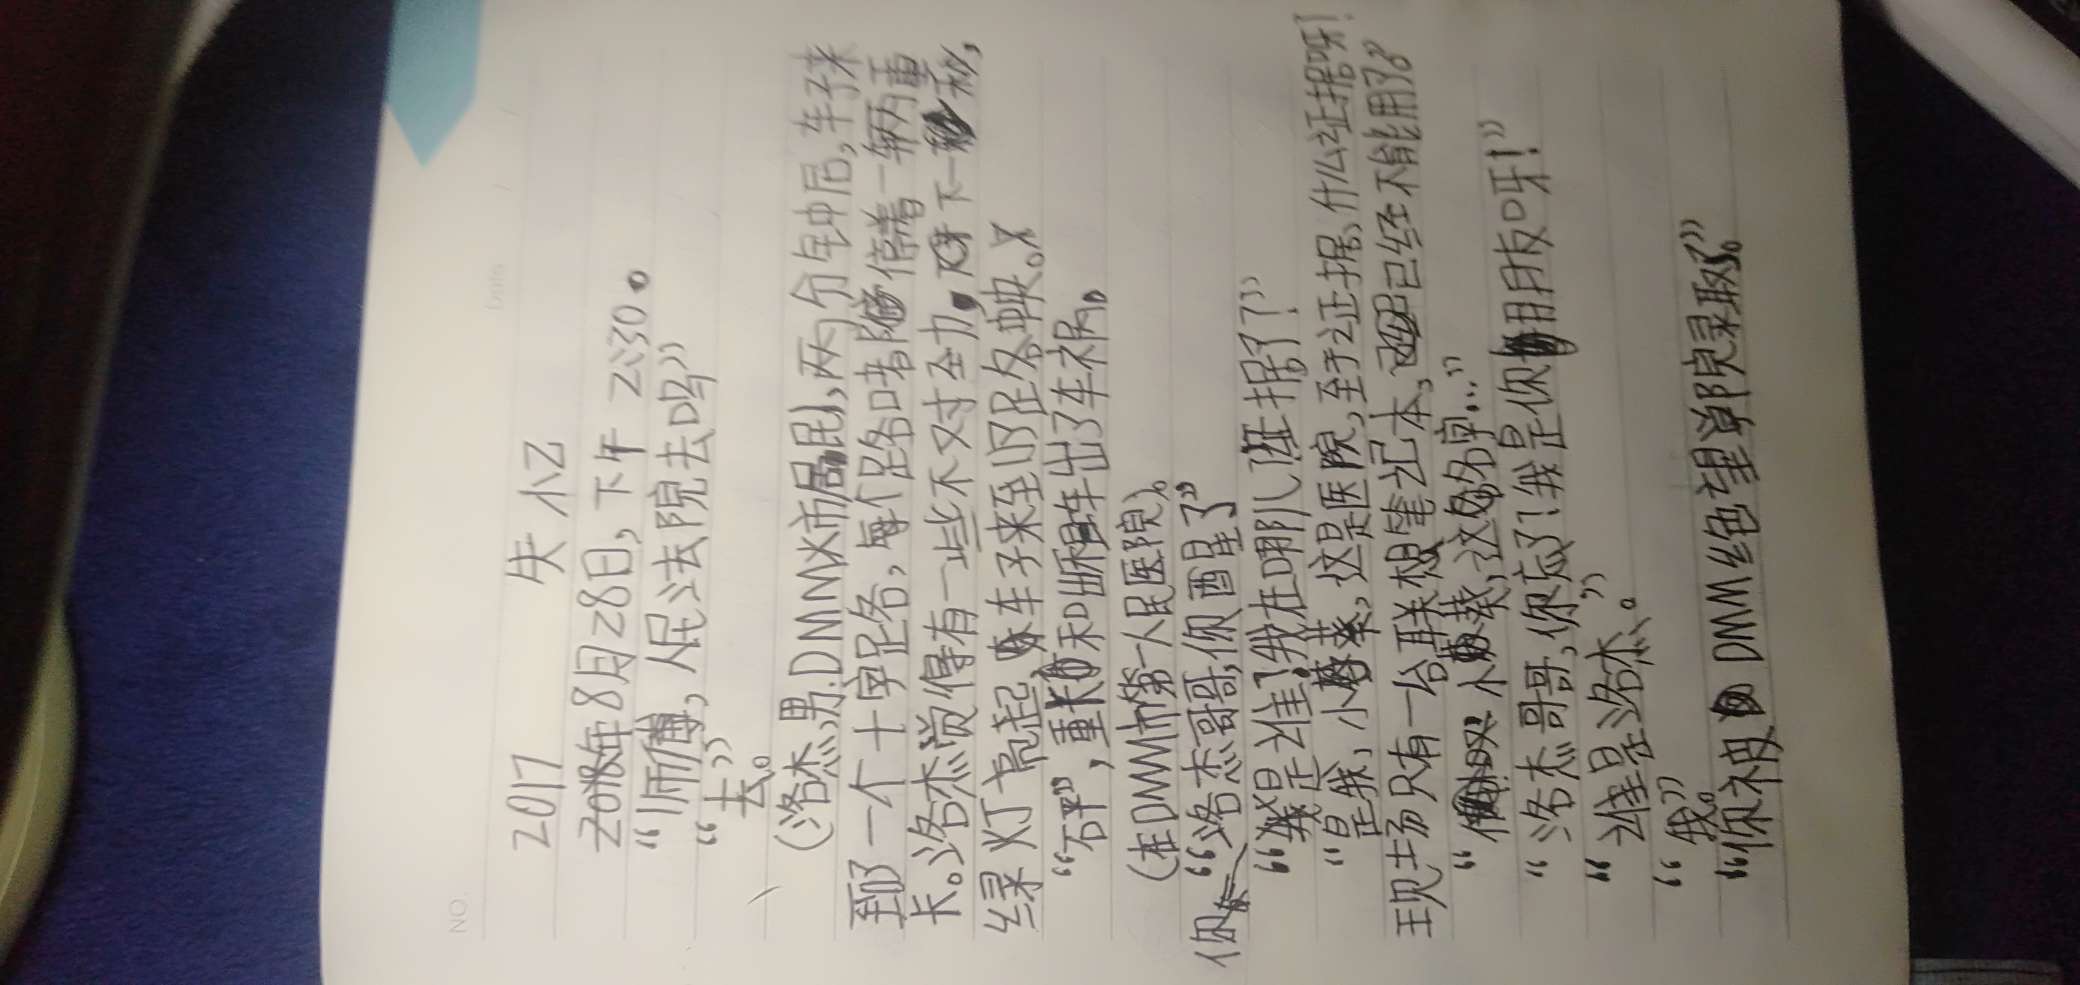 NO.
Date
2017 失忆
年8月28日，下午 2:30。
“师傅，人民法院去吗”
“去”
去。
(洛杰,男,DMM市居民,两分钟后,车子来
到了一个十字路,每个路口者停着一辆重
卡。洛杰觉得有一些不对全力。下一秒,
绿灯亮起 车子来到路中央。
“砰”,重卡和出租车出了车祸。
(在DMM市第一人民医院)。
“洛杰哥哥,你醒了”
你
“我是谁?我在哪儿证据了?”
“是我,小葵,这是医院,至于证据,什么证据呀!
现场只有一台联想笔记本,已经不能用了。
“ 小葵,这名字...”
“洛杰哥哥,你忘了!我是你朋友呀!”
“谁是洛杰”
杰。
“我”
“你被 DMM绝望学院录取了”